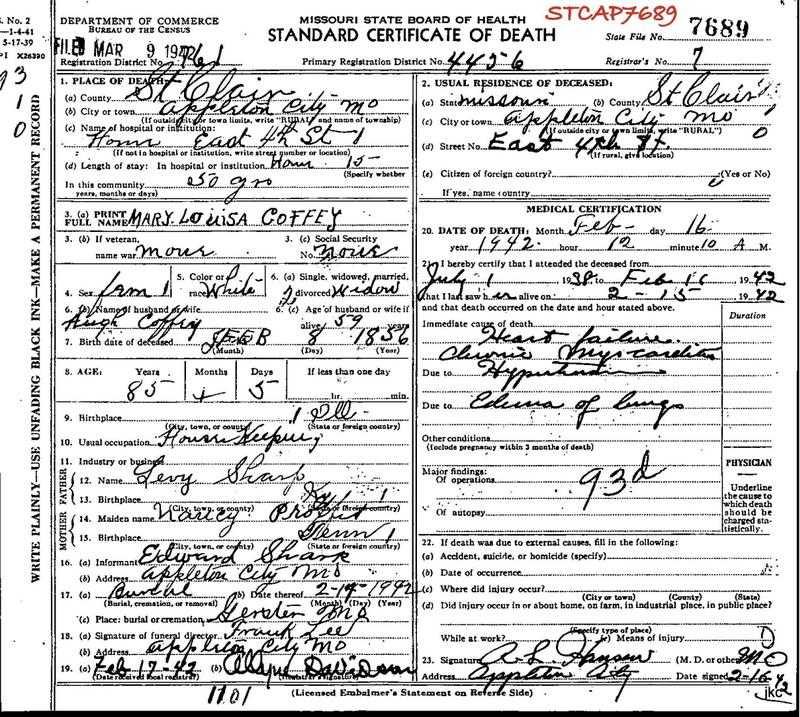 S. No. 2
—1-4-41
5-17-39
PI X26390
DEPARTMENT OF COMMERCE
BUREAU OF THE CENSUS
MISSOURI STATE BOARD OF HEALTH
STANDARD CERTIFICATE OF DEATH
STCAP7689
State File No. 7689
FILED MAR 9 1942
Registration District No.
Primary Registration District No. 4456
Registrar's No. 7
WRITE PLAINLY—USE UNFADING BLACK INK—MAKE A PERMANENT RECORD
1. PLACE OF DEATH:
(a) County St Clair
(b) City or town Appleton City Mo
(If outside city or town limits, write "RURAL" and name of township)
(c) Name of hospital or institution:
Home East 4th St
(If not in hospital or institution, write street number or location)
(d) Length of stay: In hospital or institution Home 15
(Specify whether
In this community 50 yrs
years, months or days)
2. USUAL RESIDENCE OF DECEASED:
(a) State Missouri (b) County St Clair
(c) City or town Appleton City Mo
(If outside city or town limits, write "RURAL")
(d) Street No. East 4th St
(If rural, give location)
(e) Citizen of foreign country? (Yes or No)
If yes, name country
3. (a) PRINT FULL NAME MARY LOUISA COFFEY
3. (b) If veteran, name war none
3. (c) Social Security No. none
4. Sex fem
5. Color or race White
6. (a) Single, widowed, married, divorced Widow
6. (b) Name of husband or wife Hugh Coffey
6. (c) Age of husband or wife if alive 59 years
7. Birth date of deceased FEB 8 1856
(Month) (Day) (Year)
8. AGE: Years Months Days If less than one day
85 5 hr. min.
9. Birthplace Ill
(City, town, or county) (State or foreign country)
10. Usual occupation House Keeping
11. Industry or business
FATHER
12. Name Levy Sharp
13. Birthplace Ky
(City, town, or county) (State or foreign country)
MOTHER
14. Maiden name Nancy
15. Birthplace Tenn
(City, town, or county) (State or foreign country)
16. (a) Informant Edward Sharp
(b) Address Appleton City Mo
17. (a) Burial (b) Date thereof 2-17-1942
(Burial, cremation, or removal) (Month) (Day) (Year)
(c) Place: burial or cremation Gersten Mo
18. (a) Signature of funeral director Frank Lee
(b) Address Appleton City Mo
19. (a) Feb 17-42 (b) Davidson
(Date received local registrar) (Registrar's signature)
MEDICAL CERTIFICATION
20. DATE OF DEATH: Month Feb day 16
year 1942 hour 12 minute 10 A M.
21. I hereby certify that I attended the deceased from
July 1 1938 to Feb 16 1942
that I last saw her alive on 2-15 1942
and that death occurred on the date and hour stated above.
Duration
Immediate cause of death
Heart failure
chronic myocarditis
Due to Hypertension
Due to Edema of lungs
Other conditions
(Include pregnancy within 3 months of death)
Major findings:
Of operations
93d
Of autopsy
PHYSICIAN
Underline
the cause to
which death
should be
charged sta-
tistically.
22. If death was due to external causes, fill in the following:
(a) Accident, suicide, or homicide (specify)
(b) Date of occurrence
(c) Where did injury occur?
(City or town) (County) (State)
(d) Did injury occur in or about home, on farm, in industrial place, in public place?
(Specify type of place)
While at work? (e) Means of injury
23. Signature A. L. Hansen (M. D. or other) MD
Address Appleton City Date signed 2-16-42
1101
(Licensed Embalmer's Statement on Reverse Side)
jkc